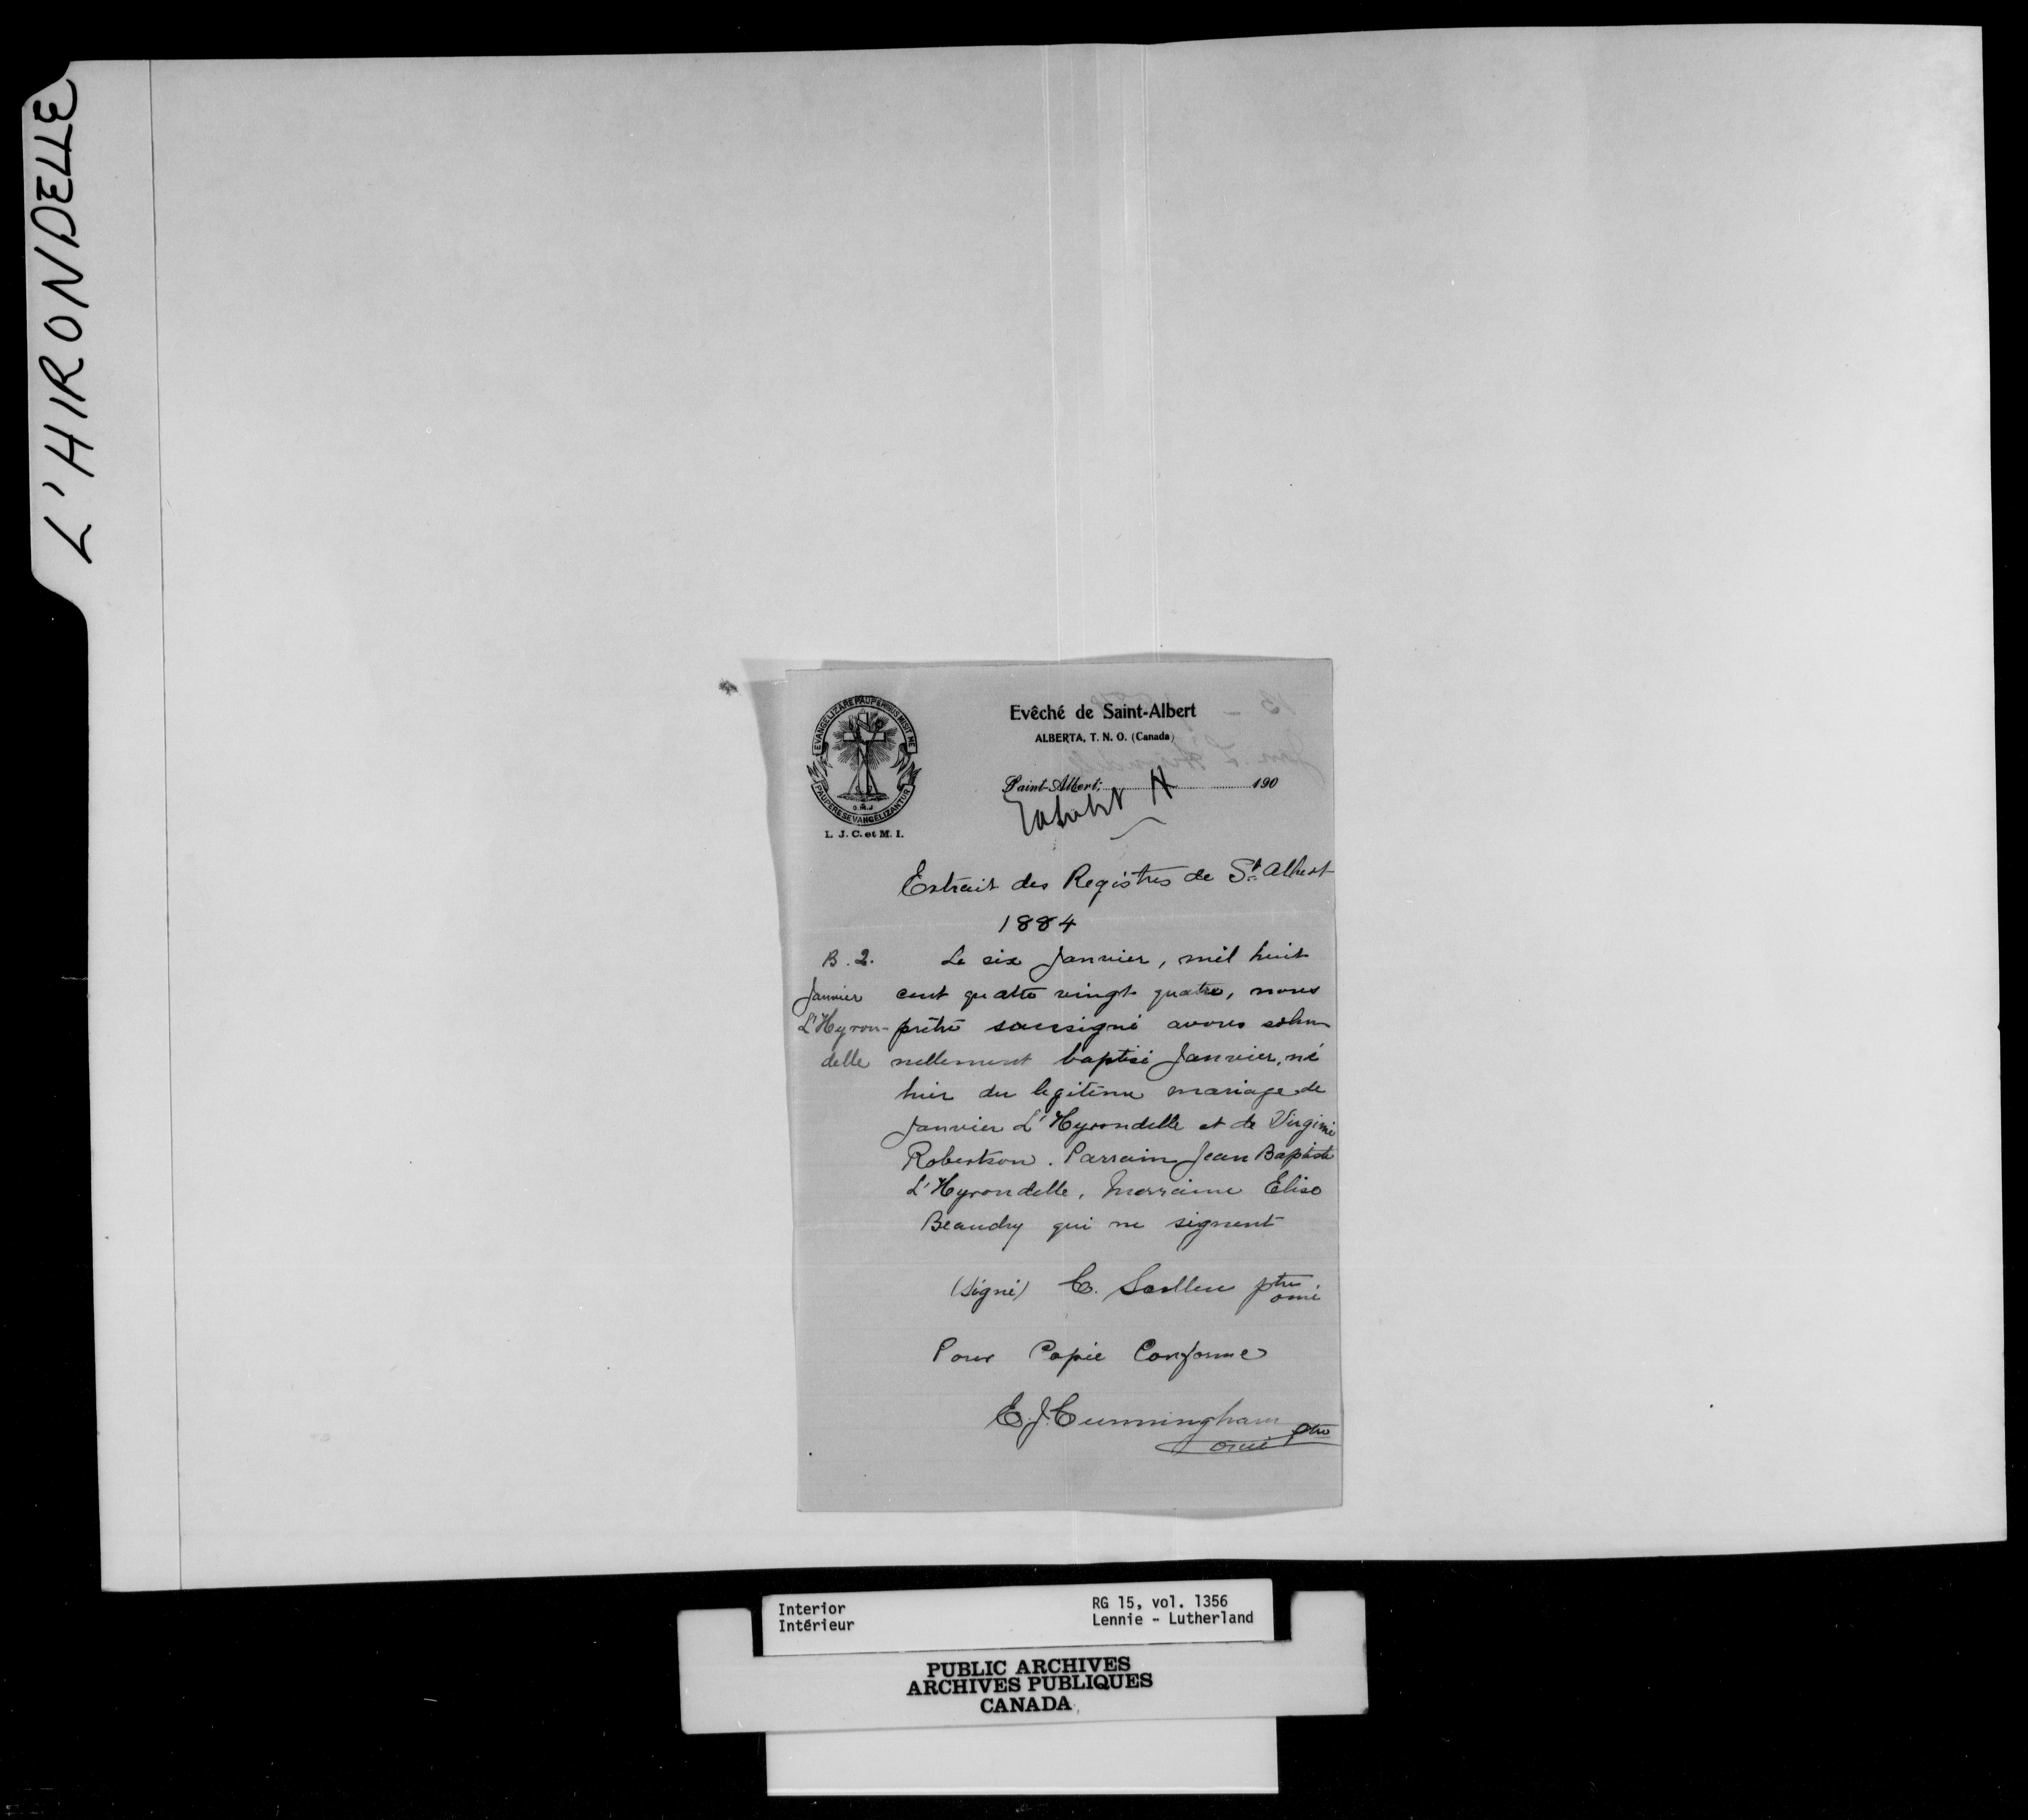 L'HIRONDELLE
EVANGELIZARE PAUPERIBUS MISIT ME
PAUPERES EVANGELIZANTUR
O.M.J
L. J. C. et M. I.
Evêché de Saint-Albert
ALBERTA, T. N. O. (Canada)
Saint-Albert; 190
Exhibit A
Extrait des Registres de St. Albert
1884
B. 2. Le six Janvier, mil huit
Janvier cent quatre vingt quatre, nous
L'Hyron- prêtre soussigné avons solen
delle nellement baptisé Janvier, né
hier du légitime mariage de
Janvier L'Hyrondelle et de Virginie
Robertson. Parrain Jean Baptiste
L'Hyrondelle, Marraine Elise
Beaudry qui ne signent
(Signé) C. Scollen ptre
omi
Pour Copie Conforme
E. J. Cunningham
omi ptre
Interior RG 15, vol. 1356
Intérieur Lennie - Lutherland
PUBLIC ARCHIVES
ARCHIVES PUBLIQUES
CANADA